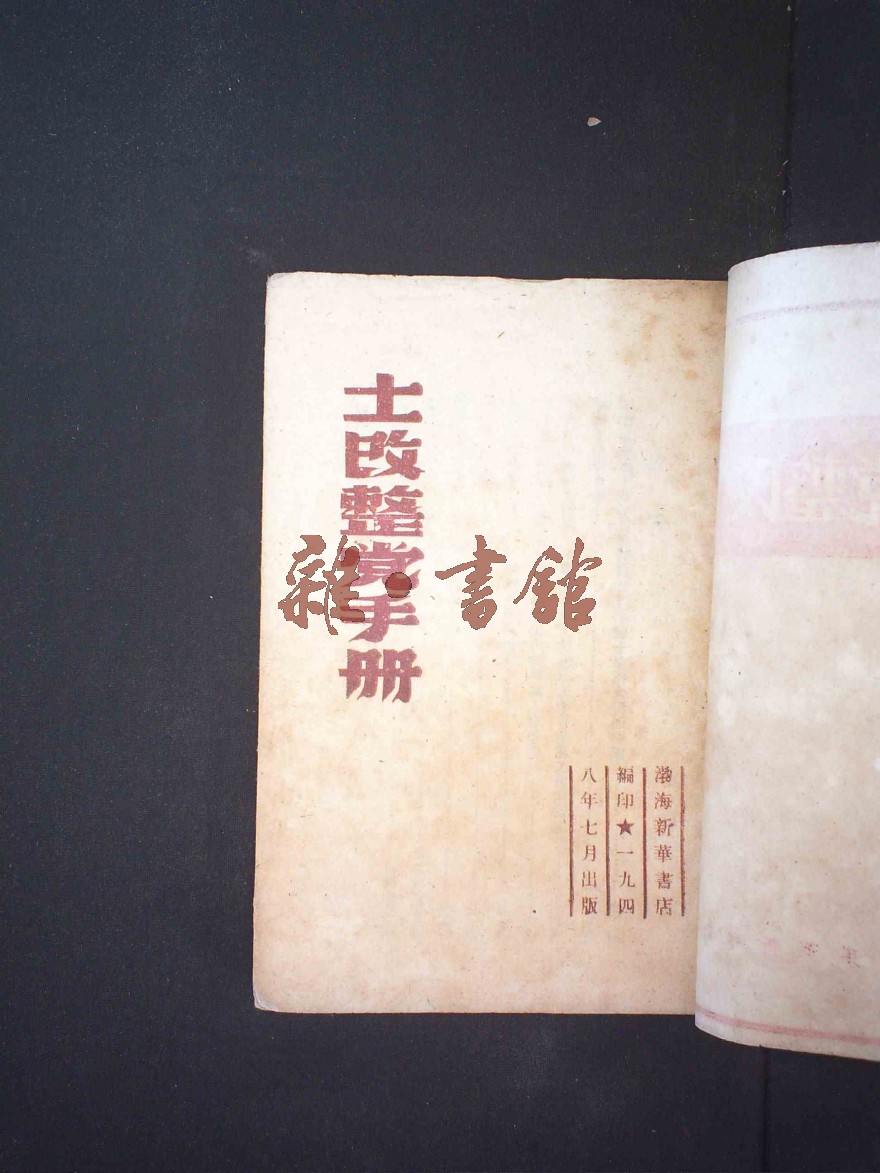 土改整党手册
渤海新華書店
編印★一九四
八年七月出版
雜·書館